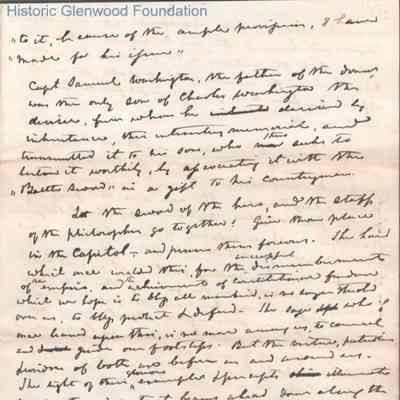 Historic Glenwood Foundation
"to it, because of the ample provision, I have
"made for his issue"
Capt Samuel Washington, the father of the donor,
was the only son of Charles Washington the
devisee, from whom he derived by
inheritance, this interesting memorial, and
transmitted it to his son, who now seeks to
bestow it worthily, by associating it with the
"Battle Sword" in a gift to his Countrymen.
Let the sword of the hero, and the staff
of the philosopher go together! Give them place
in the Capitol - and preserve them forever. The hand
which once wielded this, for the
of empire, and the achievement of constitutional freedom
which we hope is to bless all mankind, is no longer
over us, to bless protect & defend. The sage who
once leaned upon this, is no more among us, to counsel
and guide our footsteps. But the
of both are before us and around us.
The light of their glorious examples & precepts illuminate
along the